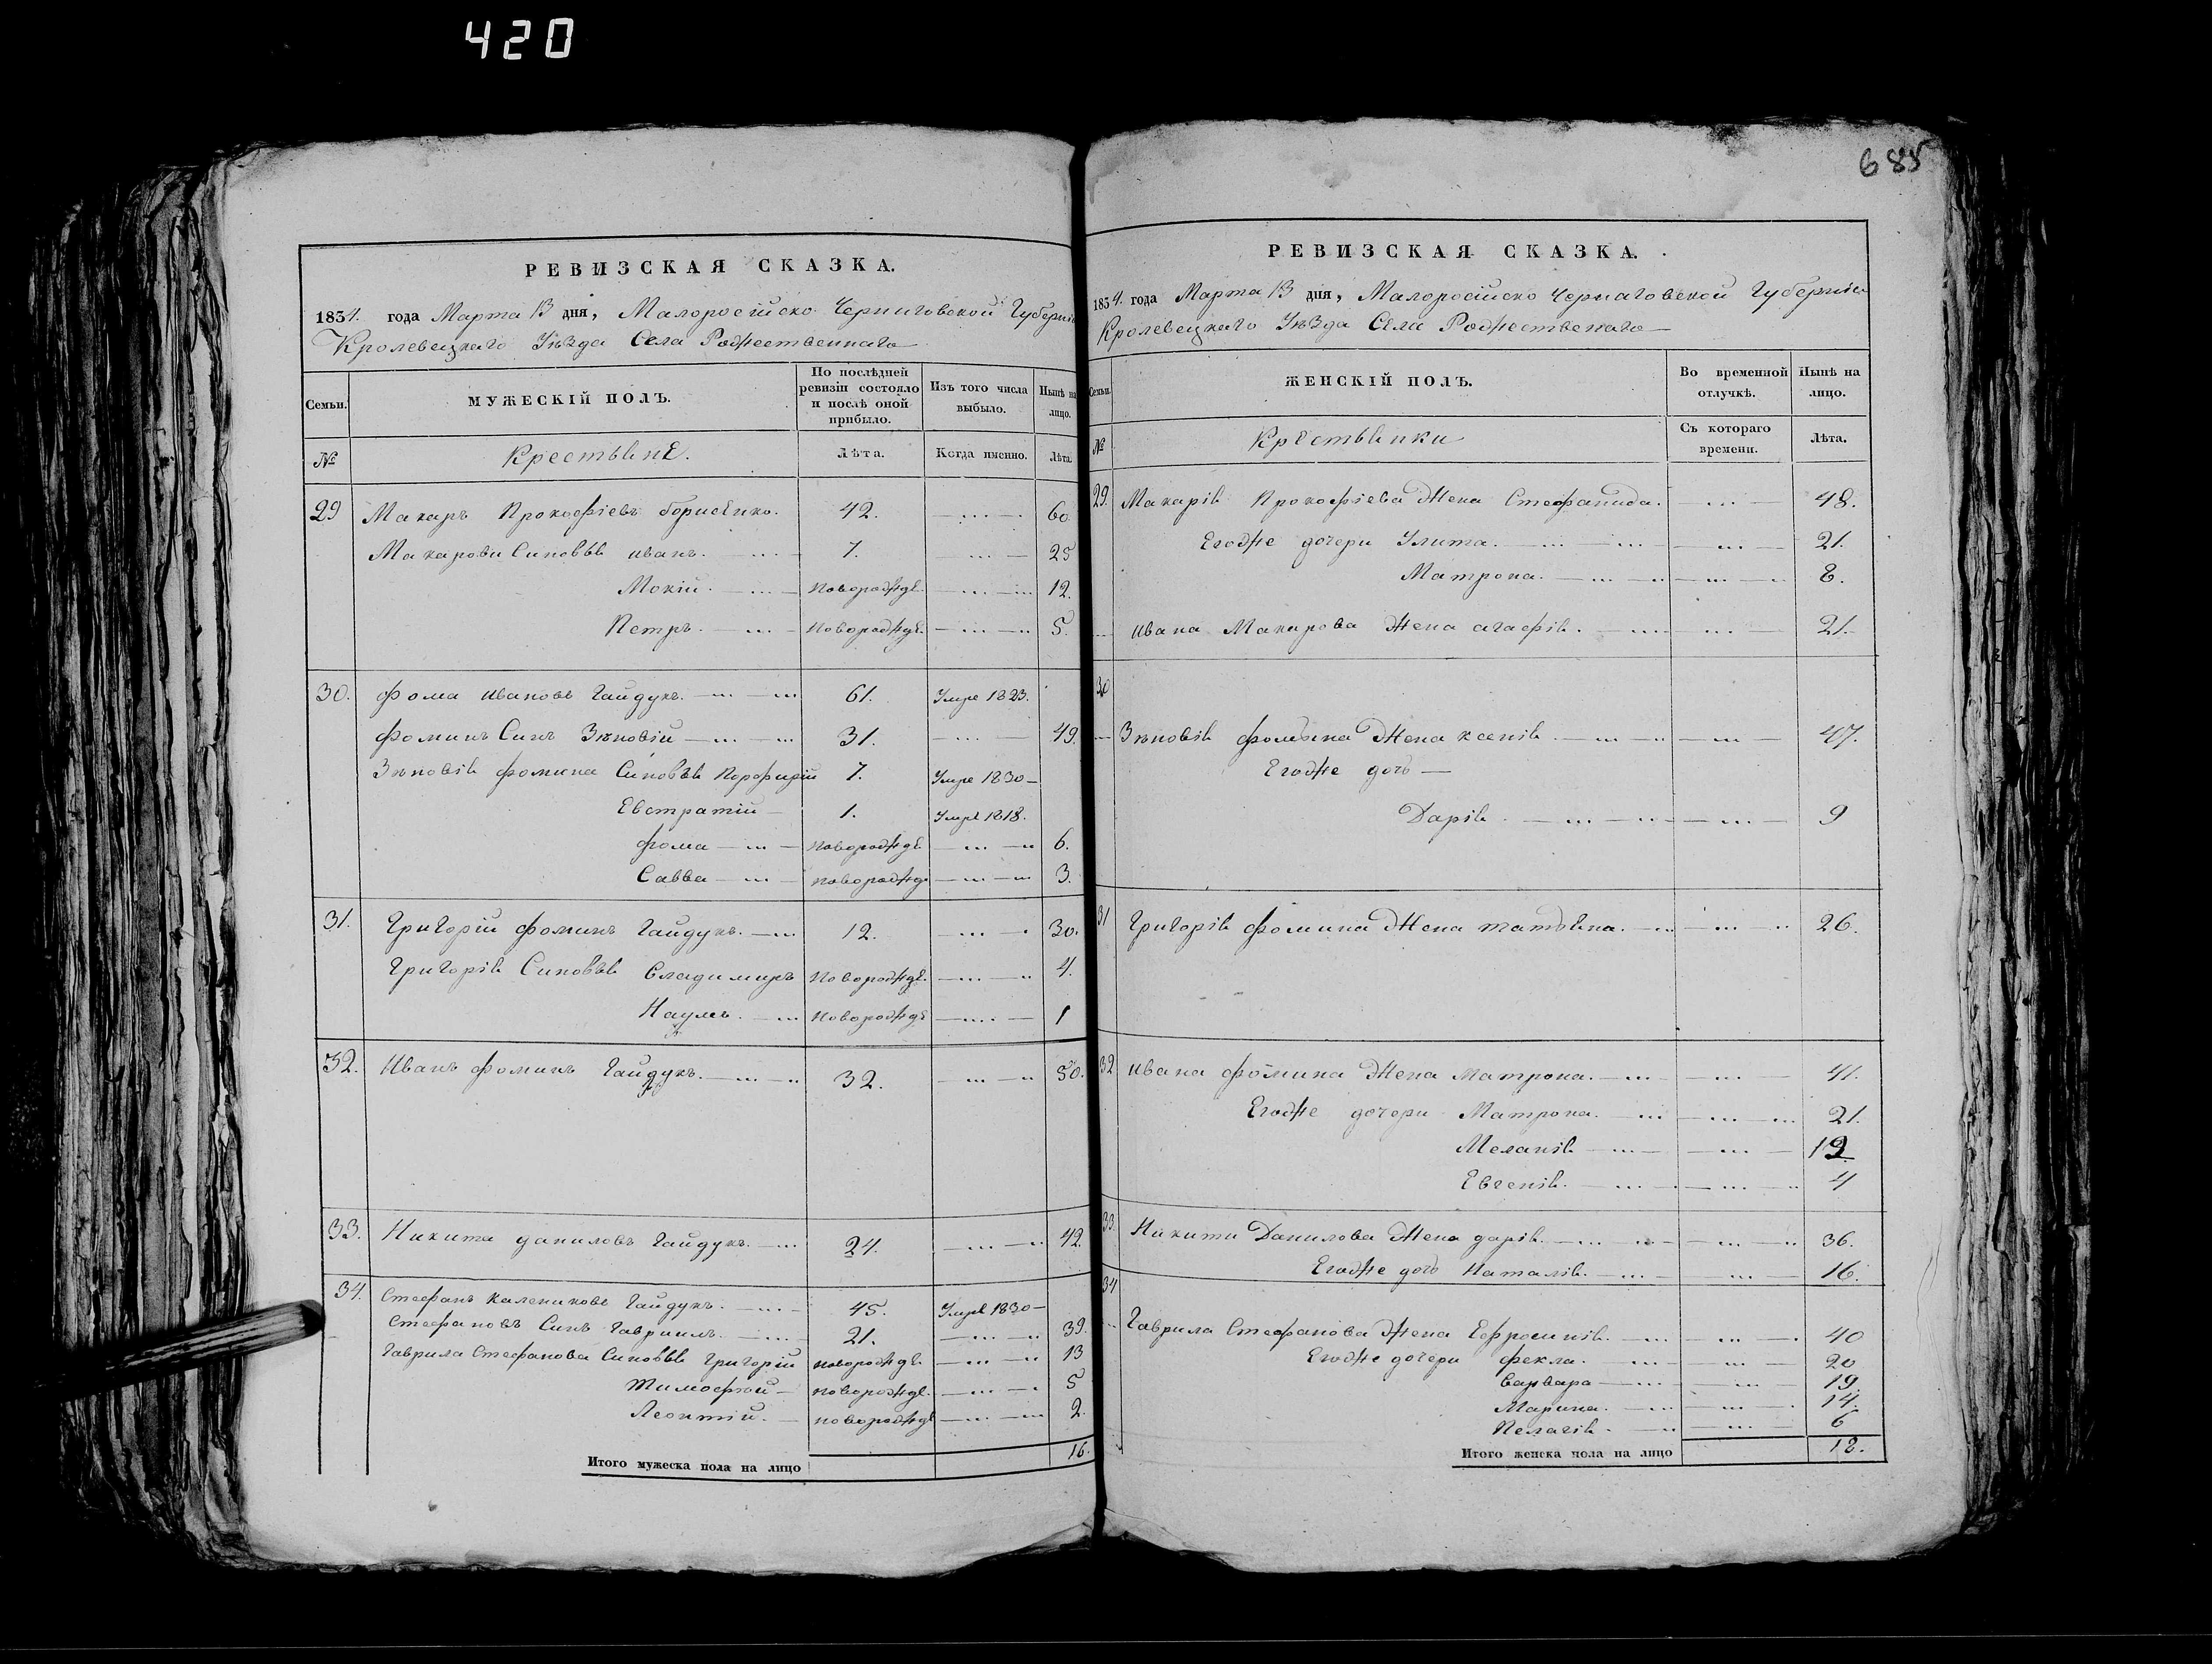 420
685
РЕВИЗСКАЯ СКАЗКА.
1834. года Марта 13 дня, Малоросійско Черниговской Губерніи
Кролевецкаго Уѣзда Села Рождественнаго
Семьи. МУЖЕСКІЙ ПОЛЪ. По послѣдней ревизіи состояло и послѣ оной прибыло. Изъ того числа выбыло. Нынѣ на лицо.
№ Крестьянѣ. Лѣта. Когда именно. Лѣта.
29 Макаръ Прокофіевъ Борисенко. 42. 60
Макарови Синовья иванъ. 7. 25
Мокій. новорожде. 12.
Петръ. новорожде. 5.
30. Фома ивановъ Гайдукъ. 61. Умре 1823.
Фоминъ Синъ Зѣновій 31. 49.
Зѣновія Фомина Синовья Порофирій 7. Умре 1830
Евстратій 1. Умре 1818.
Фома новорожде. 6.
Савва новорожде 3.
31. Григорій Фоминъ Гайдукъ. 12. 30.
Григорія Синовья Владимиръ новорожде. 4.
Наумъ. новорожде 1
32. Иванъ Фоминъ Гайдукъ. 32. 50.
33. Никита даниловъ Гайдукъ. 24. 42.
34. Стефанъ Калениковъ Гайдукъ. 45. Умре 1830
Стефановъ Синъ Гавриилъ. 21. 39.
Гаврила Стефанова Синовья Григорій новорожде. 13
Тимофей новорожде. 5
Леонтій. новорожде 2.
Итого мужеска пола на лицо 16.
РЕВИЗСКАЯ СКАЗКА.
1834. года Марта 13 дня, Малоросійско Черниговской Губерніи
Кролевецкаго Уѣзда Села Рождественаго
Семьи. ЖЕНСКІЙ ПОЛЪ. Во временной отлучкѣ. Нынѣ на лицо.
№ Крестьянки Съ котораго времени. Лѣта.
29. Макарія Прокофіева Жена Стефанида. 48.
Егожѣ дочери Улита. 21.
Матрона. 8.
ивана Макарова Жена агафія. 21.
30
Зѣновія фомина Жена ксенія 47.
Егоже дочь
Дарія. 9
31 Григорія Фомина Жена татьяна. 26.
32 ивана фомина Жена матрона. 41.
Егоже дочери Матрона. 21.
Меланія 12
Евгенія. 4
33. Никити Данилова Жена дарія. 36.
Егоже дочь Наталія. 16.
34
Гаврила Стефанова Жена Ефросинія. 40
Егоже дочери фекла. 20
Варвара 19.
Марина. 14.
Пелагія. 6
Итого женска пола на лицо 18.